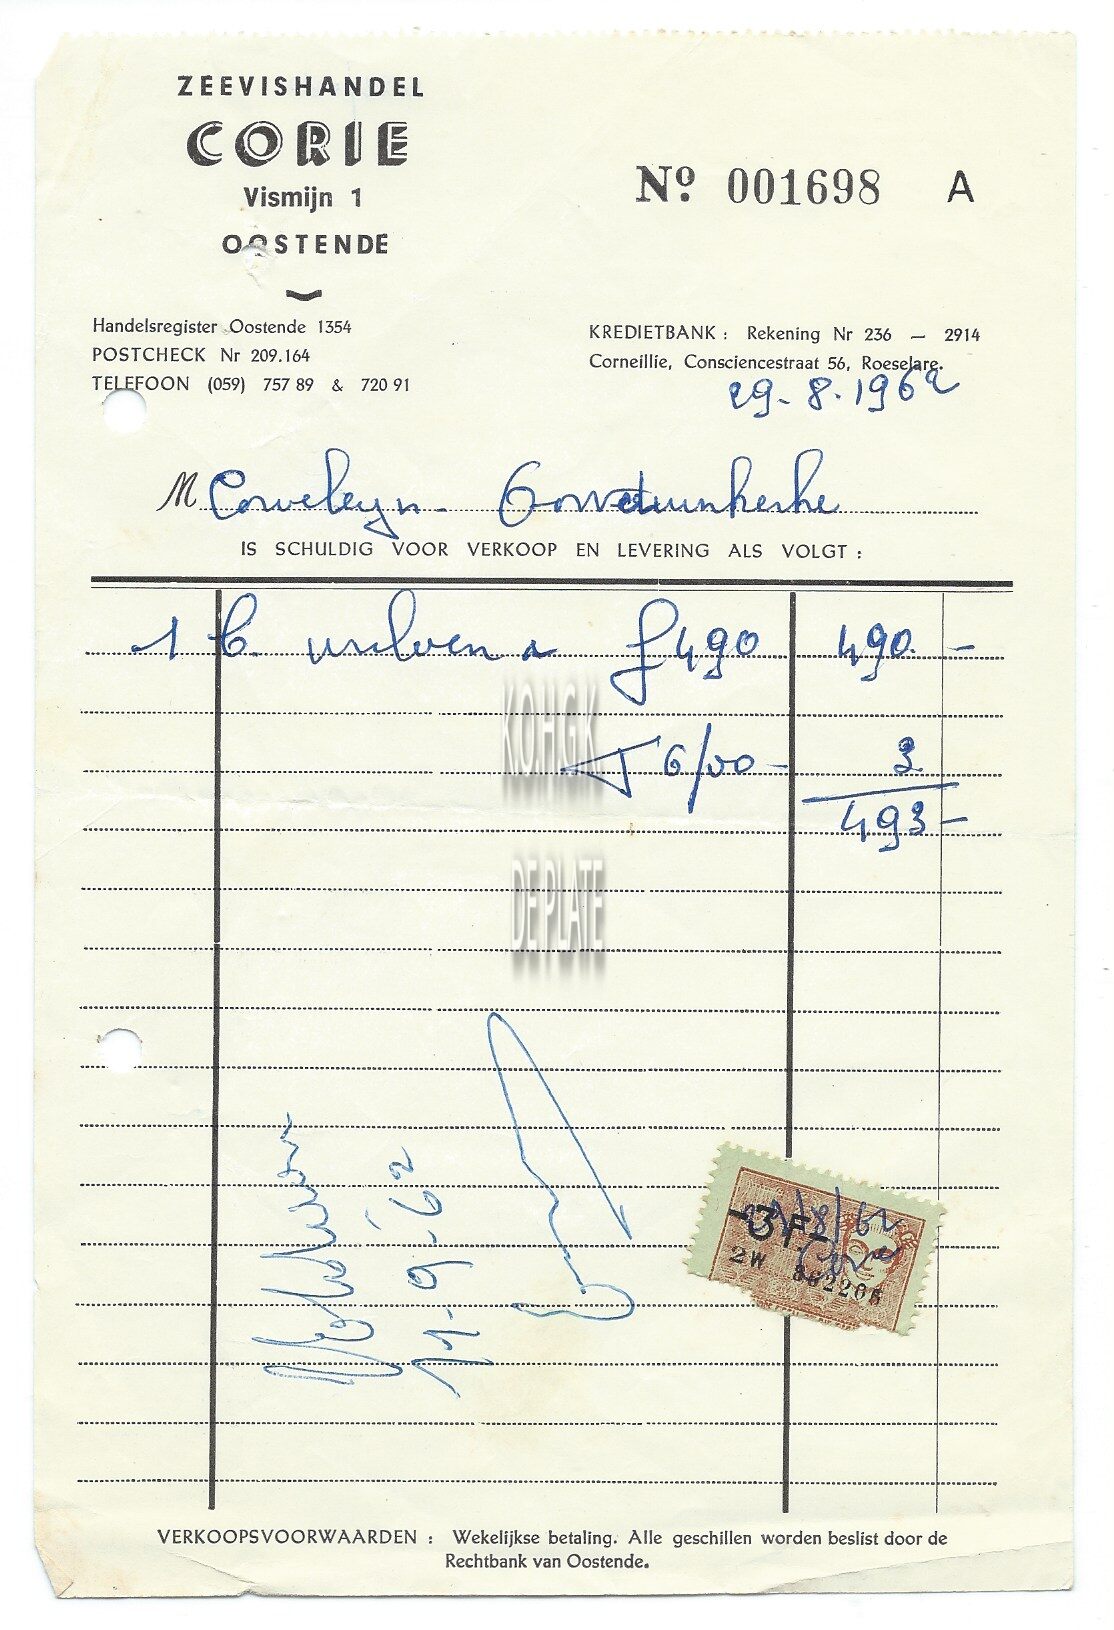 ZEEVISHANDEL
CORIE
Vismijn 1
OOSTENDE
Nº 001698 A
Handelsregister Oostende 1354
POSTCHECK Nr 209.164
TELEFOON (059) 757 89 & 720 91
KREDIETBANK : Rekening Nr 236 — 2914
Corneillie, Consciencestraat 56, Roeselare.
29-8-1962
M
IS SCHULDIG VOOR VERKOOP EN LEVERING ALS VOLGT :
1 490 490.-
K.O.H.G.K.
T 6/00 - 3
493-
DE PLATE
Voldaan
11-9-62
-3F-
2W
VERKOOPSVOORWAARDEN : Wekelijkse betaling. Alle geschillen worden beslist door de
Rechtbank van Oostende.